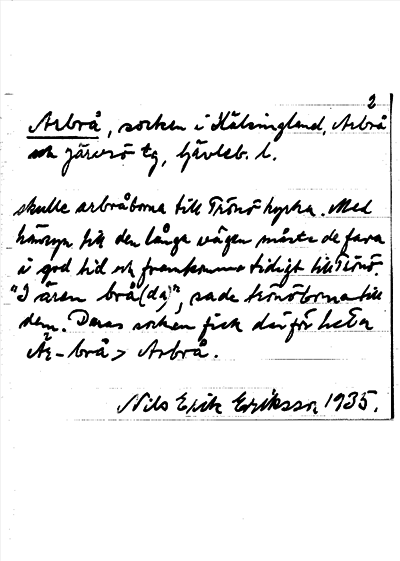 2
Arbrå, socken i Hälsingland, Arbrå
och Järvsö tg, Gävleb. l.
skulle arbråborna till Trönö kyrka. Med
hänsyn till den långa vägen måste de fara
i god tid och framkomma tidigt till Trönö.
"I ären brå(da)", sade trönöborna till
dem. Deras socken fick därför heta
Är-brå > Arbrå.
Nils Erik Eriksson 1935.